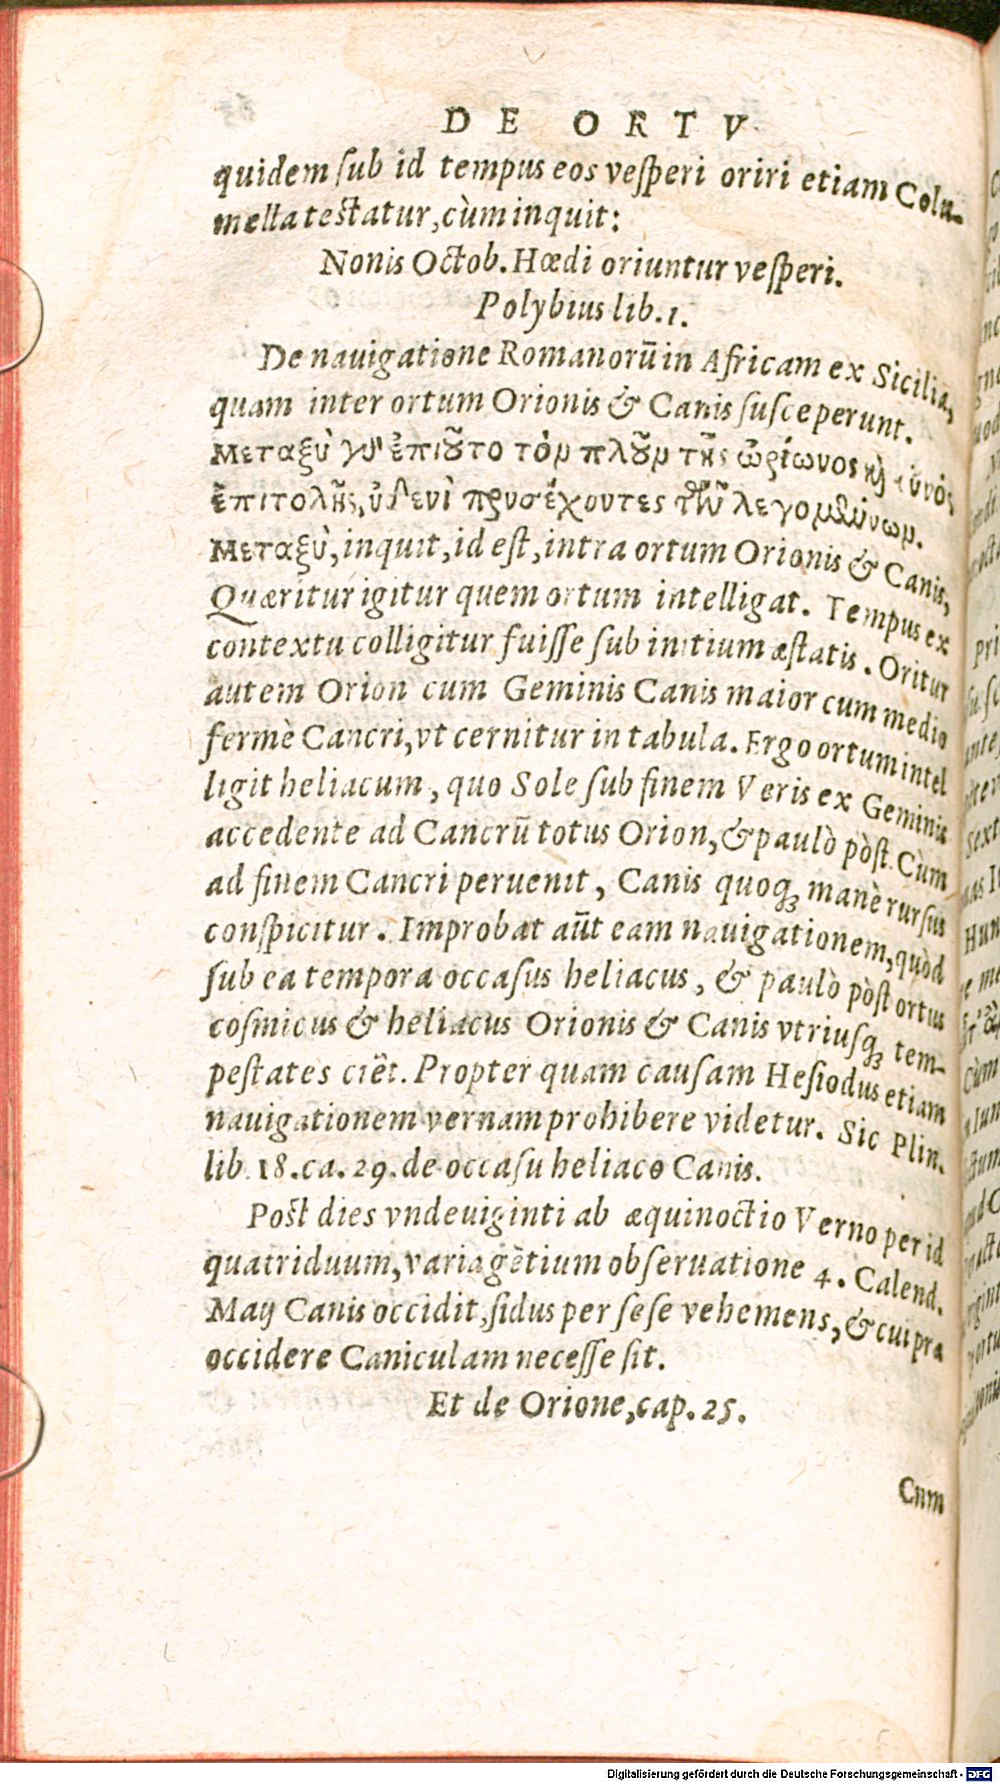 DE ORTV
quidem ſub id tempus eos veſperi oriri etiam Colu-
mella teſtatur, cùm inquit:
Nonis Octob. Hœdi oriuntur veſperi.
Polybius lib. 1.
De nauigatione Romanorũ in Africam ex Sicilia,
quam inter ortum Orionis & Canis ſuſceperunt.
Μεταξὺ γὰρ ἐποιοῦντο τὸν πλοῦν τῆς ὠρίωνος καὶ κυνὸς
ἐπιτολῆς, οὐδενὶ προσέχοντες τῶν λεγομένων.
Μεταξὺ, inquit, id eſt, intra ortum Orionis & Canis,
Quæritur igitur quem ortum intelligat. Tempus ex
contextu colligitur fuiſſe ſub initium æſtatis. Oritur
autem Orion cum Geminis Canis maior cum medio
fermè Cancri, vt cernitur in tabula. Ergo ortum intel
ligit heliacum, quo Sole ſub finem Veris ex Geminis
accedente ad Cancrũ totus Orion, & paulò pòſt. Cùm
ad finem Cancri peruenit, Canis quoq; manè rurſus
conſpicitur. Improbat aũt eam nauigationem, quòd
ſub ea tempora occaſus heliacus, & paulò pòſt ortus
coſmicus & heliacus Orionis & Canis vtriuſq; tem-
peſtates ciẽt. Propter quam cauſam Heſiodus etiam
nauigationem vernam prohibere videtur. Sic Plin.
lib. 18. ca. 29. de occaſu heliaco Canis.
Poſt dies vndeuiginti ab æquinoctio Verno per id
quatriduum, varia gẽtium obſeruatione 4. Calend.
Maij Canis occidit, ſidus per ſeſe vehemens, & cui præ
occidere Caniculam neceſſe ſit.
Et de Orione, cap. 25.
Cum
Digitalisierung gefördert durch die Deutsche Forschungsgemeinschaft - DFG